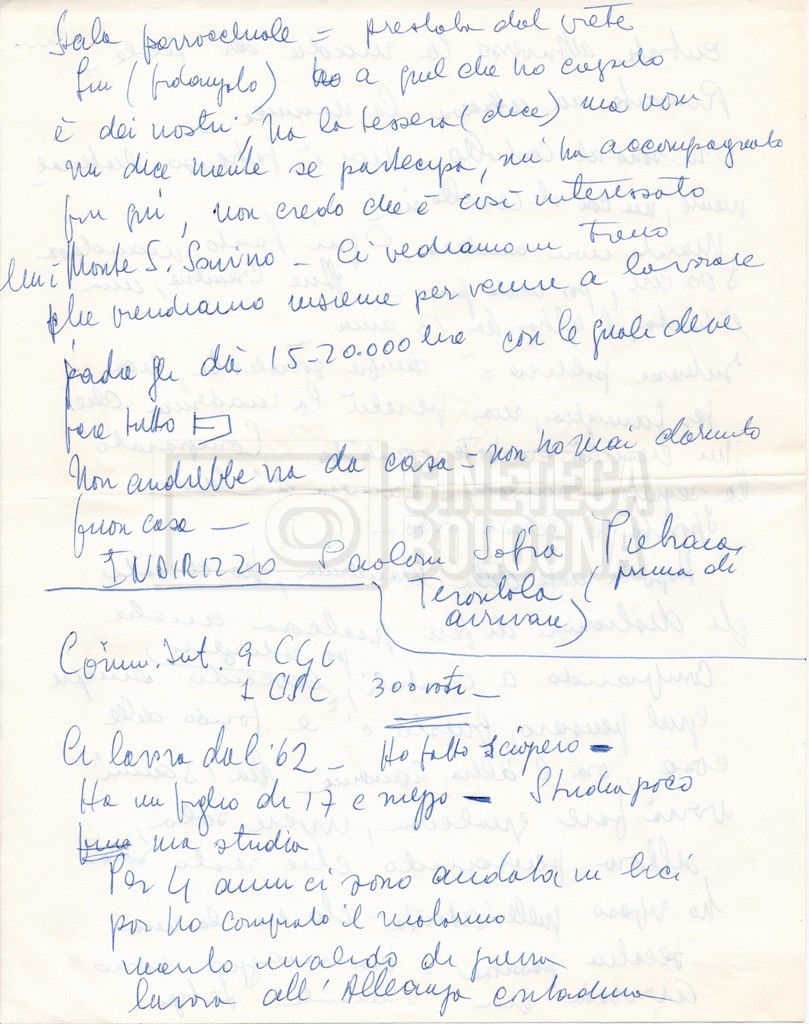 Sala parrocchiale = prestata dal prete
Lui (fidanzato) ho a quel che ho capito
è dei nostri, ha la tessera (dice) ma non
mi dice niente se partecipa, mi ha accompagnato
fin qui, non credo che è così interessato
Lui è Monte S. Savino - Ci vediamo in treno
che prendiamo insieme per venire a lavorare
padre gli dà 15-20.000 lire con le quali deve
fare tutto
Non andrebbe via da casa = non ho mai dormito
fuori casa —
INDIRIZZO Paoloni Sofia Pietraia
Terontola (prima di
arrivare)
Comm. Int. 9 CGL
1 CISL 300 voti -
Ci lavora dal '62 - Ho fatto sciopero -
Ha un figlio di 17 e mezzo - Studia poco
ma studia
Per 4 anni ci sono andata in bici
poi ho comprato il motorino
marito invalido di guerra
lavora all'Alleanza contadina
CINETECA
BOLOGNA